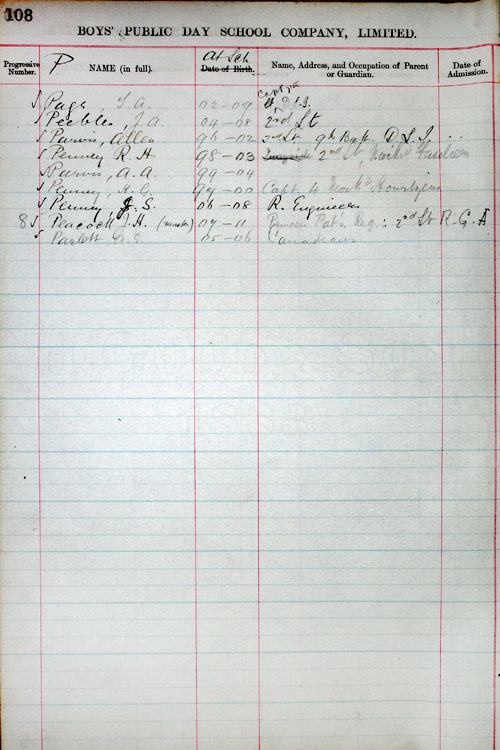 108
BOYS' PUBLIC DAY SCHOOL COMPANY, LIMITED.
Progressive Number. P NAME (in full). At Sch. Date of Birth. Name, Address, and Occupation of Parent or Guardian. Date of Admission.
S Page, T. A. 02-09 Captn D.L.I.
S Peebles, J. A. 04-08 2nd Lt
S Purvis, Allen 96-02 2nd Lt. 9th Batt. D L I
S Penney R. H 98-03 2nd Lt,
S Purvis, A. A. 99-04
S Penney, H. C. 94-00 Capt. 4
S Penney J. S. 06-08 R. Engineers
8 S Peacock J. H. 07-11 2nd Lt R. G. A
S Parlett 05-06 Canadians